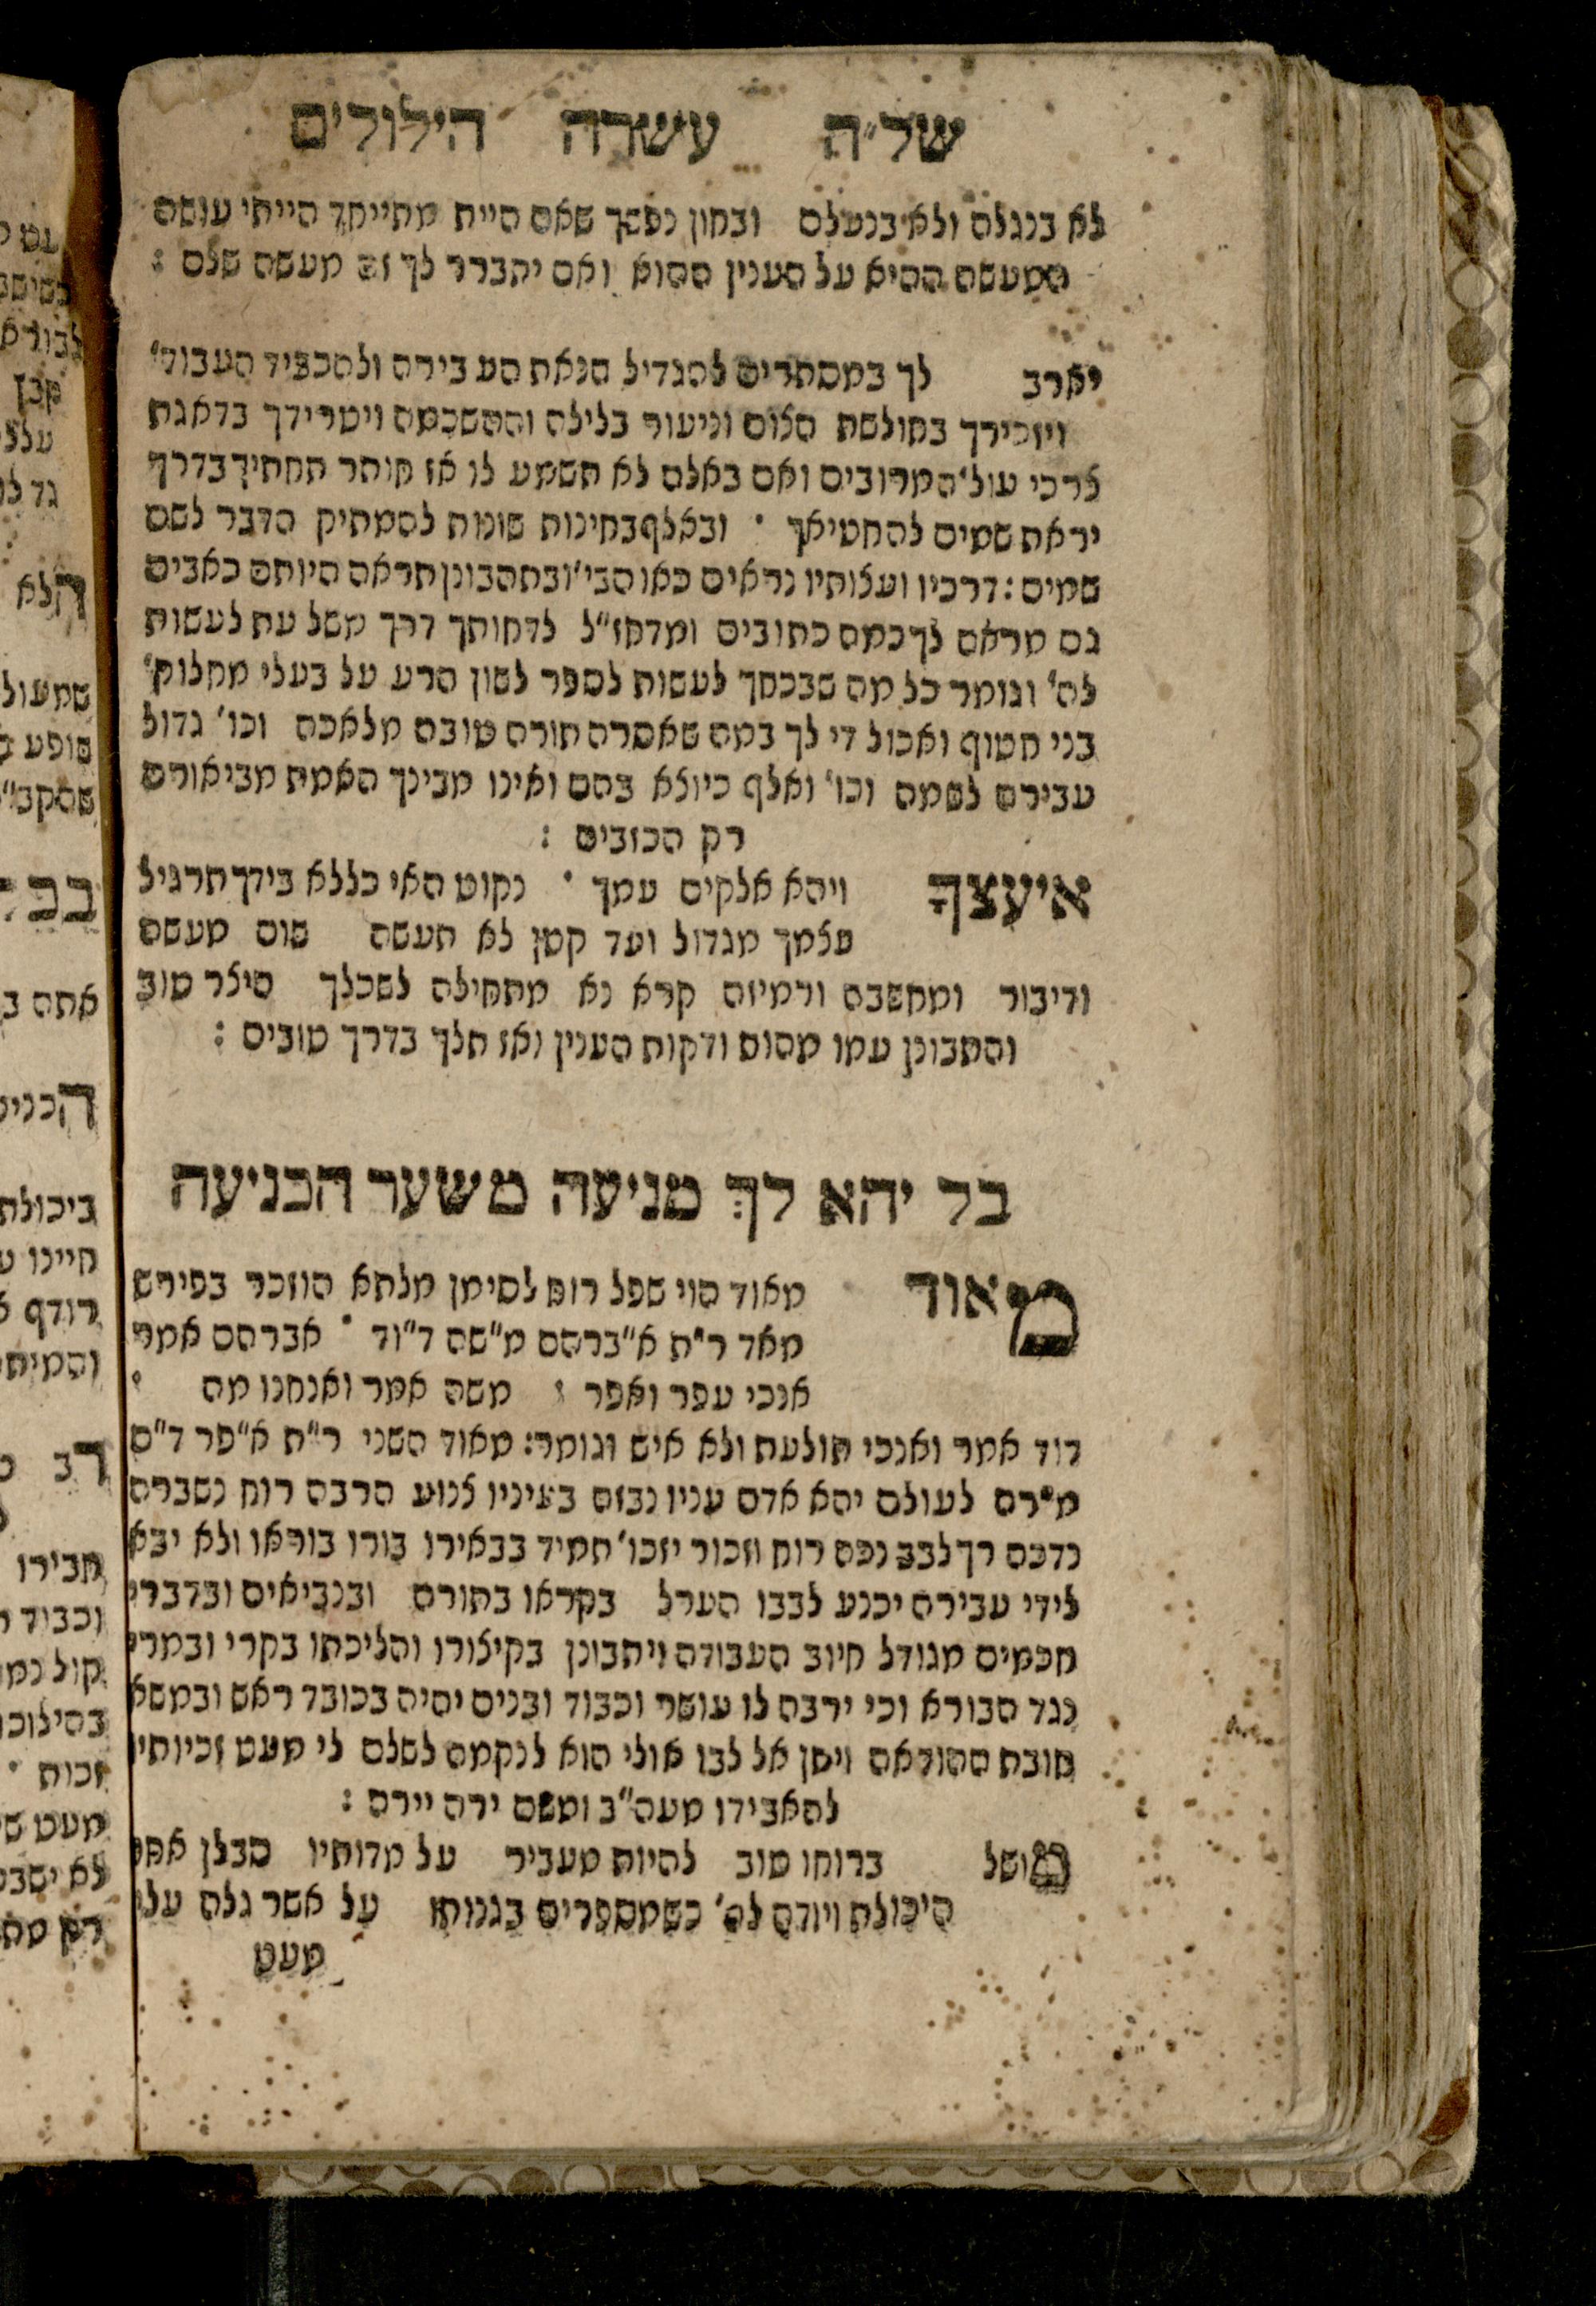 של״ה עשרה הילולים
לא בנגלה ולא בנעלם ובחון נפשך שאם היית מתייחד הייתי עושה
המעשה ההיא על הענין ההוא ואם יתברר לך זה מעשה שלם :
יארב לך במסתרים להגדיל הנאת העבירה ולהכביד העבוד׳
ויזכירך בחולשת הצום וניעור בלילה וההשכמה ויטרידך בדאגת
צרכי עול׳ המרובים ואם באלה לא תשמע לו אז חותר תחתיך בדרך
יראת שמים להחטיאך · ובאלף בחינות שונות להמתיק הדבר לשם
שמים : דרכיו ועצותיו נראים כאוהבי׳ ובהתבונן תראה היותם כאבים
גם מראה לך כמה כתובים ומדחז״ל לדחותך דרך משל עת לעשות
לה׳ וגומר כל מה שבכחך לעשות לספר לשון הרע על בעלי מחלוק׳
בני חטוף ואכול די לך במה שאסרה תורה טובה מלאכה וכו׳ גדול
עבירה לשמה וכו׳ ואלף כיוצא בהם ואינו מבינך האמת מביאורם
רק הכוזבים :
איעצך ויהא אלקים עמך · נקוט האי כללא בידך תרגיל
עצמך מגדול ועד קטן לא תעשה שום מעשה
ודיבור ומחשבה ורמיזה קרא נא מתחילה לשכלך היצר טוב
והתבונן עמו מהות ודקות הענין ואז תלך בדרך טובים :
בל יהא לך מניעה משער הכניעה
מאוד מאוד הוי שפל רוח לסימן מלתא הוזכר בפירש
מאד ר״ת א״ברהם מ״שה ד״וד · אברהם אמר
אנכי עפר ואפר : משה אמר ואנחנו מה :
דוד אמר ואנכי תולעת ולא איש וגומר : מאוד השני ר״ת א״פר ד״ם
מ״רה לעולם יהא אדם עניו נבזה בעיניו צנוע הרבה רוח נשברה
נדכה רך לבב נכה רוח וזכור יזכו׳ תמיד בבאירו בורו בוראו ולא יבא
לידי עבירה יכנע לבבו הערל בקראו בתורה ובנביאים ובדברי
חכמים מגודל חיוב העבודה ויתבונן בקיצורו והליכתו בקרי ובמרי
נגד הבורא וכי ירבה לו עושר וכבוד ובנים יהיה בכובד ראש ובמשא
חובת ההודאה ויתן אל לבו אולי הוא לנקמה לשלם לי מעט זכיותיו
להאבידו מעה״ב ומשם ירה יירה :
מושל ברוחו טוב להיות מעביר על מדותיו סבלן אחר
היכולת ויודה לה׳ כשמספרים בגנותו על אשר גלה עליו
מעט